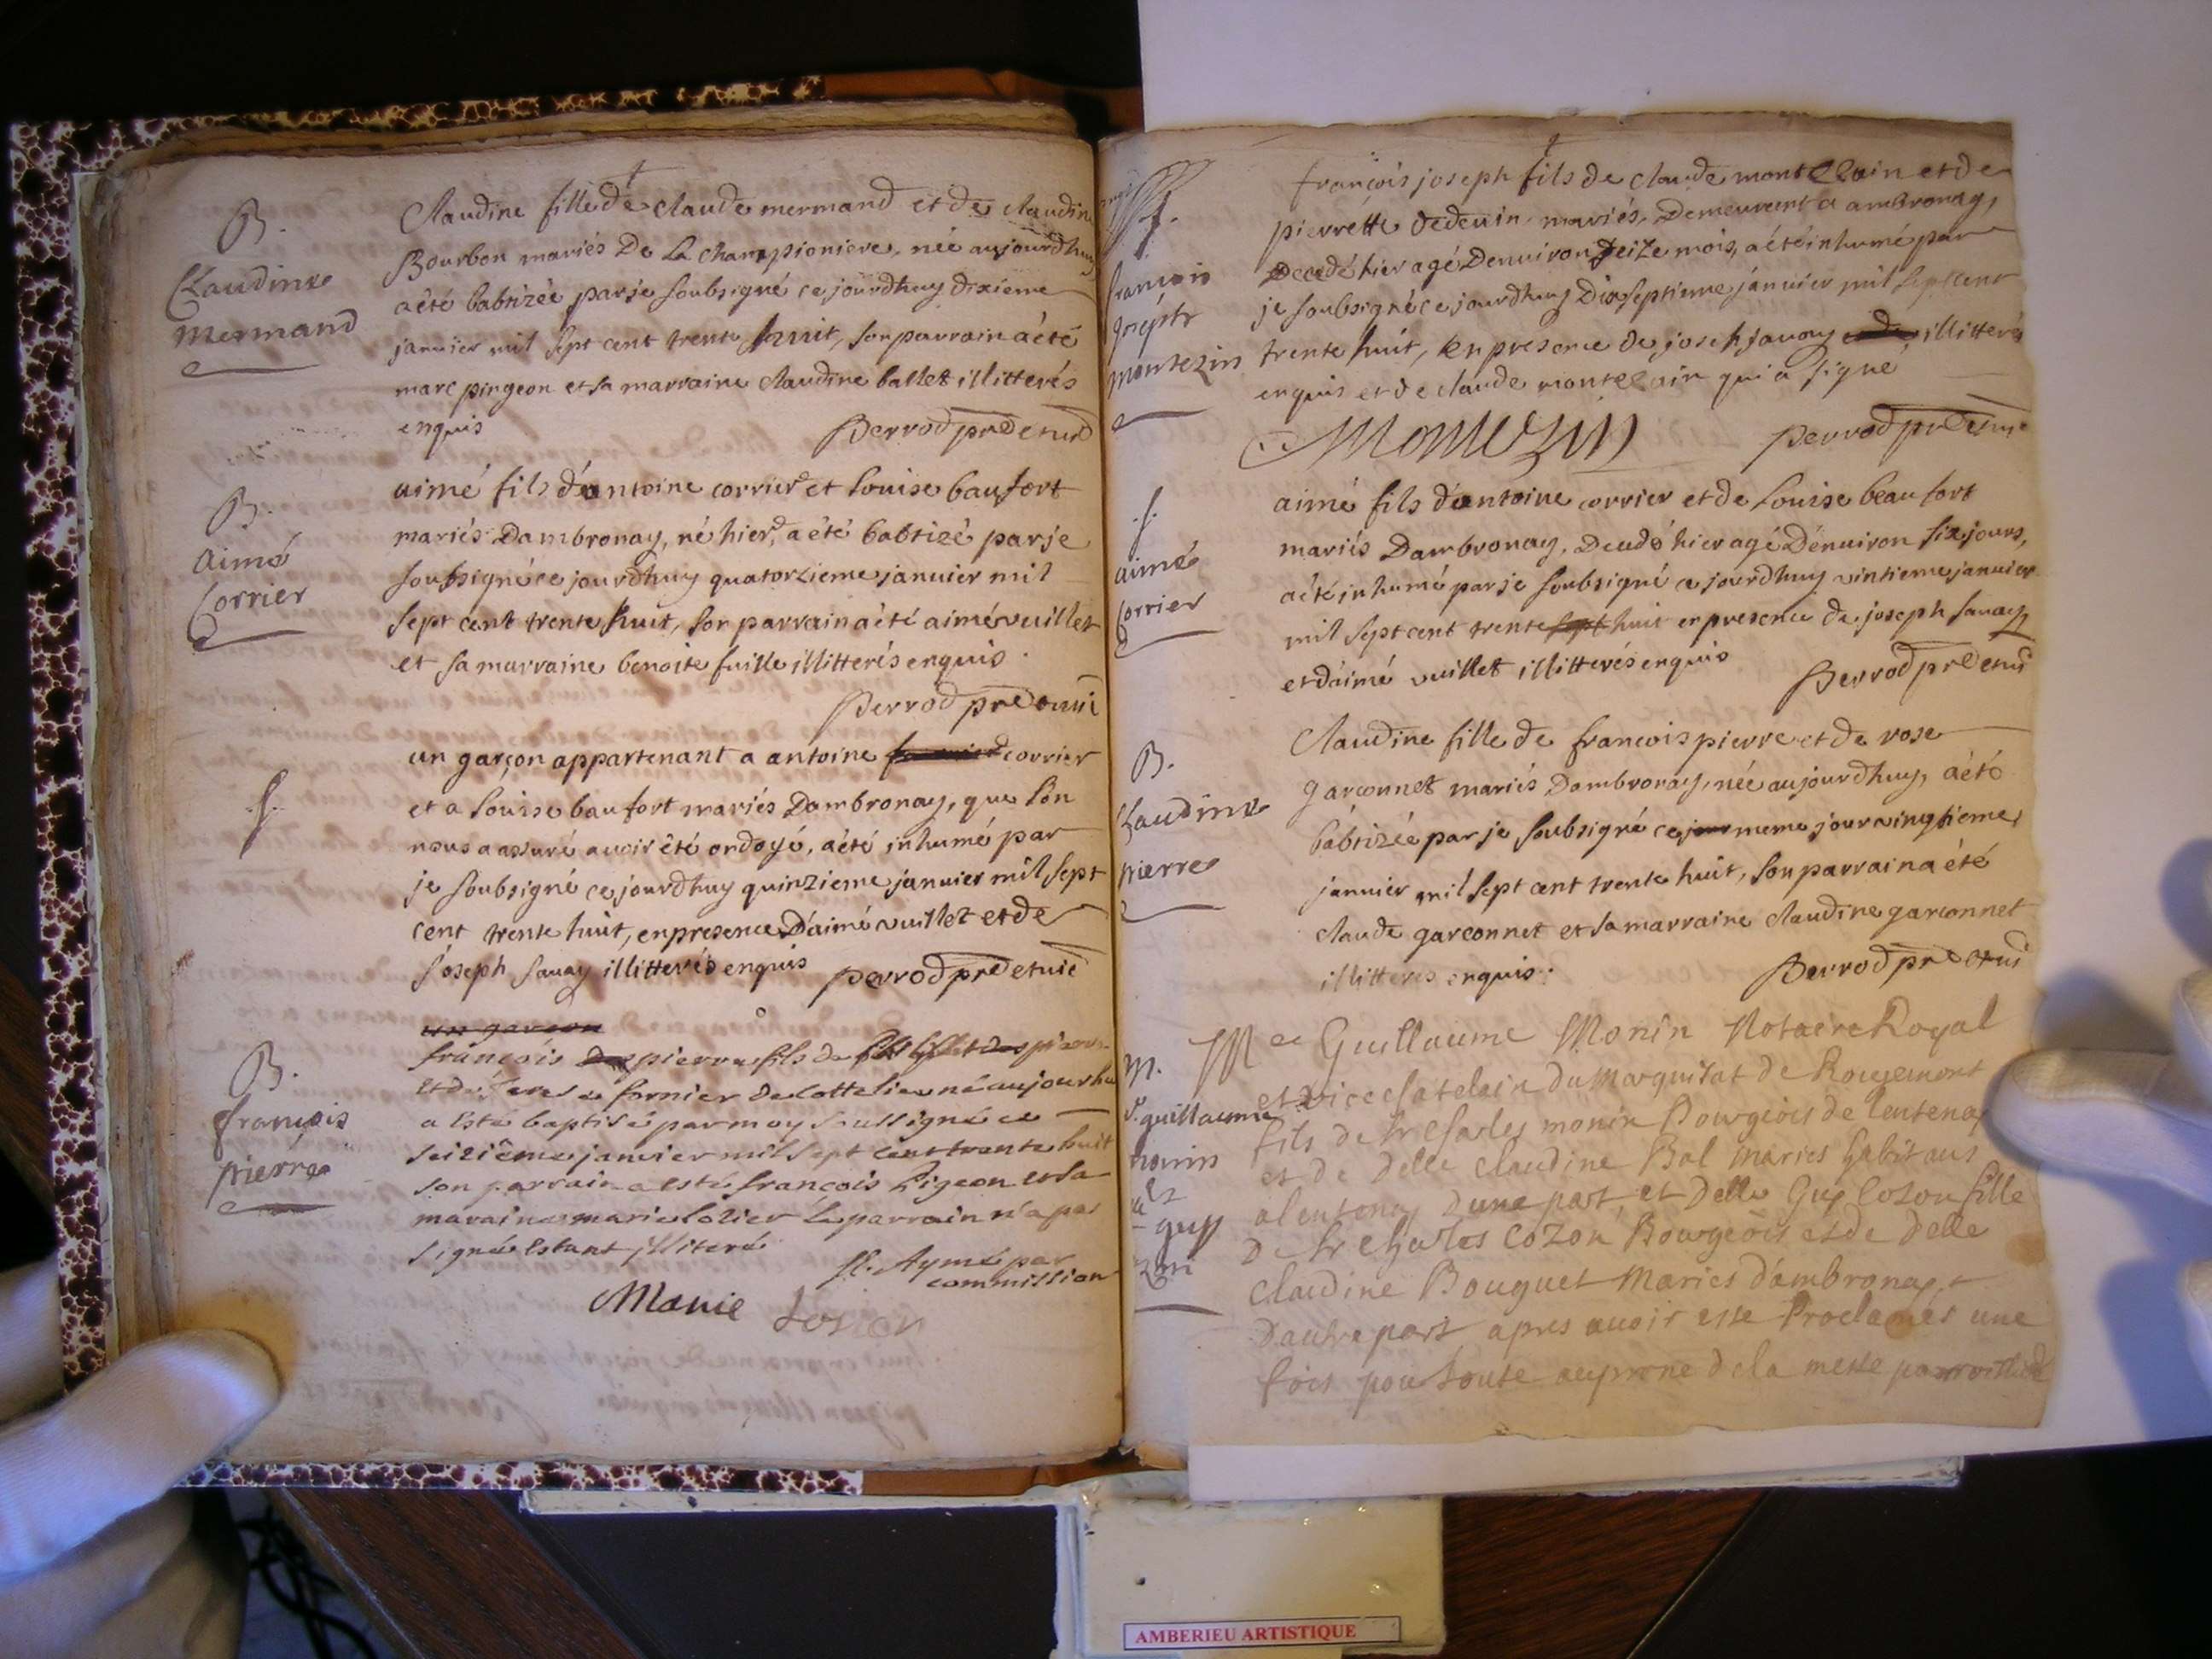 B.
Claudine
Mermand
Claudine fille de claude mermand et de claudine
Bourbon mariés De La championiere, née aujourdhuy
a été babtizée par je soubsigné ce jourdhuy dixieme
janvier mil sept cent trente huit, son parrain a été
marc pingeon et sa marraine claudine ballet illitterés
enquis
Perrod
B.
aimé
Corrier
aimé fils d'antoine corrier et louise baufort
mariés Dambronay, né hier, a été babtizé par je
soubsigné ce jourdhuy quatorzieme janvier mil
sept cent trente huit, son parrain a été aimé vuillet
et sa marraine benoite fuille illitterés enquis
Perrod
f.
un garçon appartenant a antoine corrier
et a louise baufort mariés Dambronay, que lon
nous a assuré avoir été ondoyé, a été inhumé par
je soubsigné ce jourdhuy quinzieme janvier mil sept
cent trente huit, en presence D'aimé vuillet et de
joseph savay illitterés enquis
perrod
un garcon
B.
françois
pierre
françois pierre fils de
fornier de cottelieu né aujourhu
a esté baptisé par moy soussigné ce
seiziême janvier mil sept cent trente huit
son parrain a esté françois Pigeon et sa
maraine marie lozier le parrain n'a pas
signé estant illiteré
Aymé par
commission
Marie Losier
f.
francois
joseph
montezin
françois joseph fils de claude montezin et de
pierrétte dedeuin mariés, Demeurant a ambronay,
Decedé hier agé Denuiron seize mois, a été inhumé par
je soubsigné ce jourdhuy Dixseptieme janvier mil sept cent
trente huit, en presence de joseh savay illitterés
enquis et de claude montezin qui a signé
Montezin
perrod
f.
aimé
Corrier
aimé fils d'antoine corrier et de louise beaufort
mariés Dambronay, Decedé hier agé Dénuiron six jours,
a été inhumé par je soubsigné ce jourdhuy vintieme janvier
mil sept cent trente sept huit en presence de joseph savay
et d'aimé vuillet illitterés enquis
Perrod
B.
Claudine
pierre
Claudine fille de francois pierre et de rose
garconnet mariés Dambronay, née aujourdhuy, a été
babtizée par je soubsigné ce jour meme jour vingtieme
janvier mil sept cent trente huit, son parrain a été
claude garconnet et sa marraine claudine garconnet
illitterés enquis.
Perrod
M.
Sr guillaume
monin
guy
Guillaume Monin Notaire Royal
et vice chatelain du Marquisat de Rougemont
fils de sr charles monin Bourgeois de lentenay
et de delle claudine Bal mariés habitans
a lentenay dune part, et Delle Guy Cozon fille
De sr charles Cozon Bourgeois et de delle
claudine Bouguet Mariés d'ambronay
Dautre part apres avoir esté Proclamés une
fois pour toute au prone de la messe parroissiale
AMBERIEU ARTISTIQUE